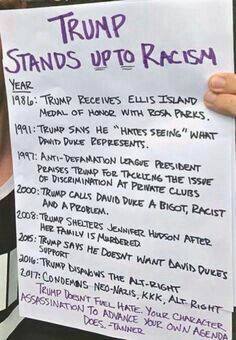 TRUMP
STANDS UP TO RACISM
YEAR
1986: TRUMP RECEIVES ELLIS ISLAND
MEDAL OF HONOR WITH ROSA PARKS.
1991: TRUMP SAYS HE "HATES SEEING" WHAT
DAVID DUKE REPRESENTS.
1997: ANTI-DEFAMATION LEAGUE PRESIDENT
PRAISES TRUMP FOR TACKLING THE ISSUE
OF DISCRIMINATION AT PRIVATE CLUBS
2000: TRUMP CALLS DAVID DUKE A BIGOT, RACIST
AND A PROBLEM.
2008: TRUMP SHELTERS JENNIFER HUDSON AFTER
HER FAMILY IS MURDERED
2015: TRUMP SAYS HE DOESN'T WANT DAVID DUKE'S
SUPPORT
2016: TRUMP DISAVOWS THE ALT-RIGHT
2017: CONDEMNS NEO-NAZIS, KKK, ALT-RIGHT
TRUMP DOESN'T FUEL HATE. YOUR CHARACTER
ASSASSINATION TO ADVANCE YOUR OWN AGENDA
DOES. -TANNER